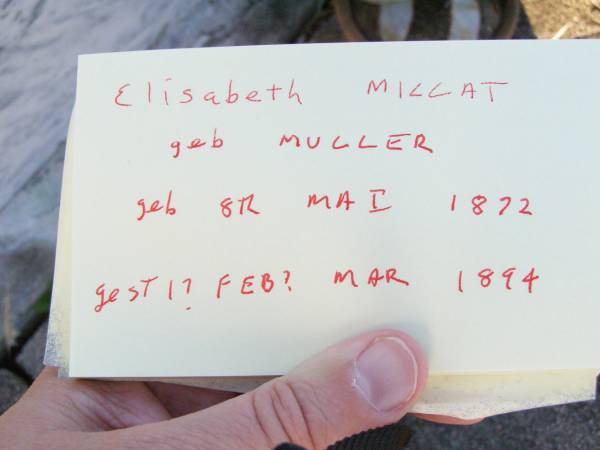 Elisabeth MILLAT
geb MULLER
geb 8TR MAI 1872
gest 1? FEB? MAR 1894